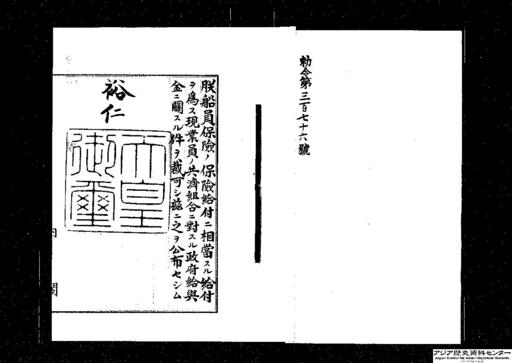 勅令第三百七十六號
朕船員保險ノ保險給付ニ相當スル給付
ヲ爲ス現業員ノ共濟組合ニ對スル政府給與
金ニ關スル件ヲ裁可シ茲ニ之ヲ公布セシム
裕仁
天皇
御璽
内閣
アジア歴史資料センター
Japan Center for Asian Historical Records